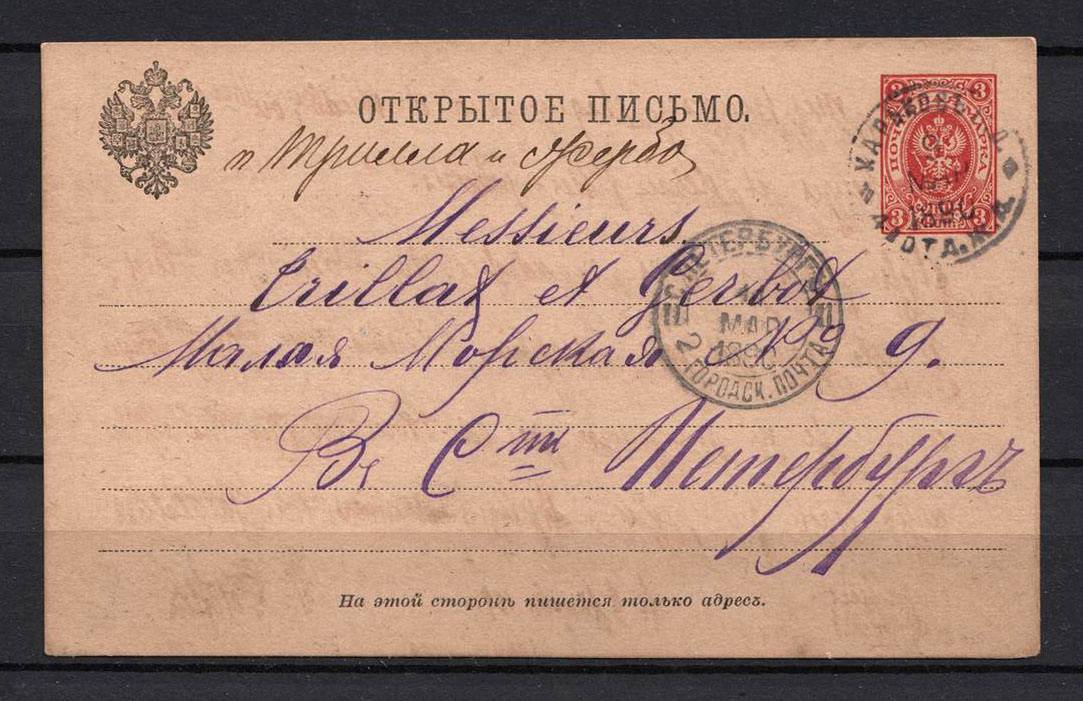 ОТКРЫТОЕ ПИСЬМО.
3 3
ПОЧ МАРКА
3 3
г. Трилла и Фербо
Messieurs
Trillat et Gerbot
Малая Морская № 9.
С.ПЕТЕРБУРГ
МАР
1890
2 ГОРОДСК. ПОЧТА
Въ С. Петербургъ
На этой сторонѣ пишется только адресъ.